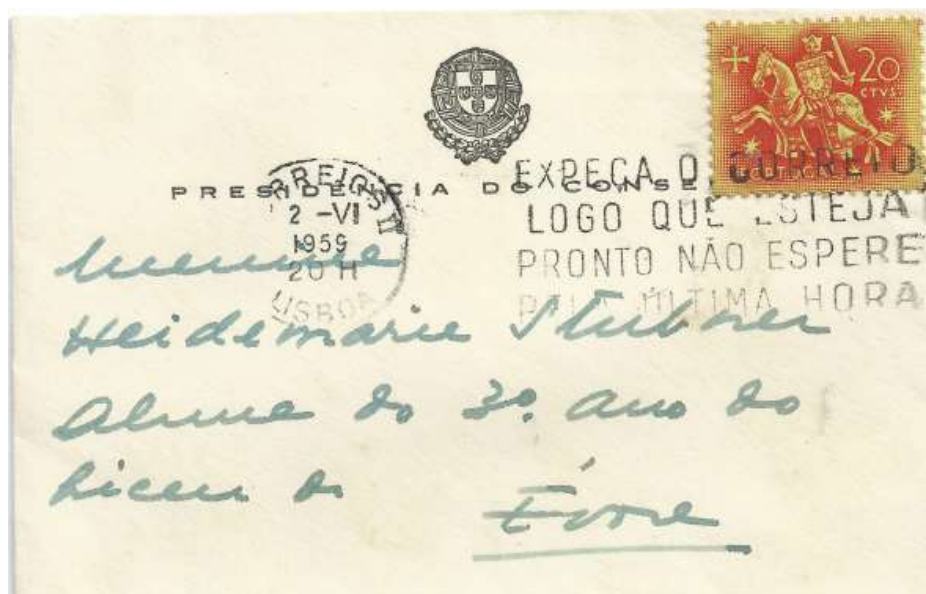 20
CTVS.
PORTUGAL
PRESIDÊNCIA DO CONSE
CORREIOS
2 -VI
1959
20 H
LISBOA
EXPEÇA O CORREIO
LOGO QUE ESTEJA
PRONTO NÃO ESPERE
PELA ÚLTIMA HORA
Menina
Heidemarie Stubner
Aluna do 3º. ano do
Liceu de
Évora